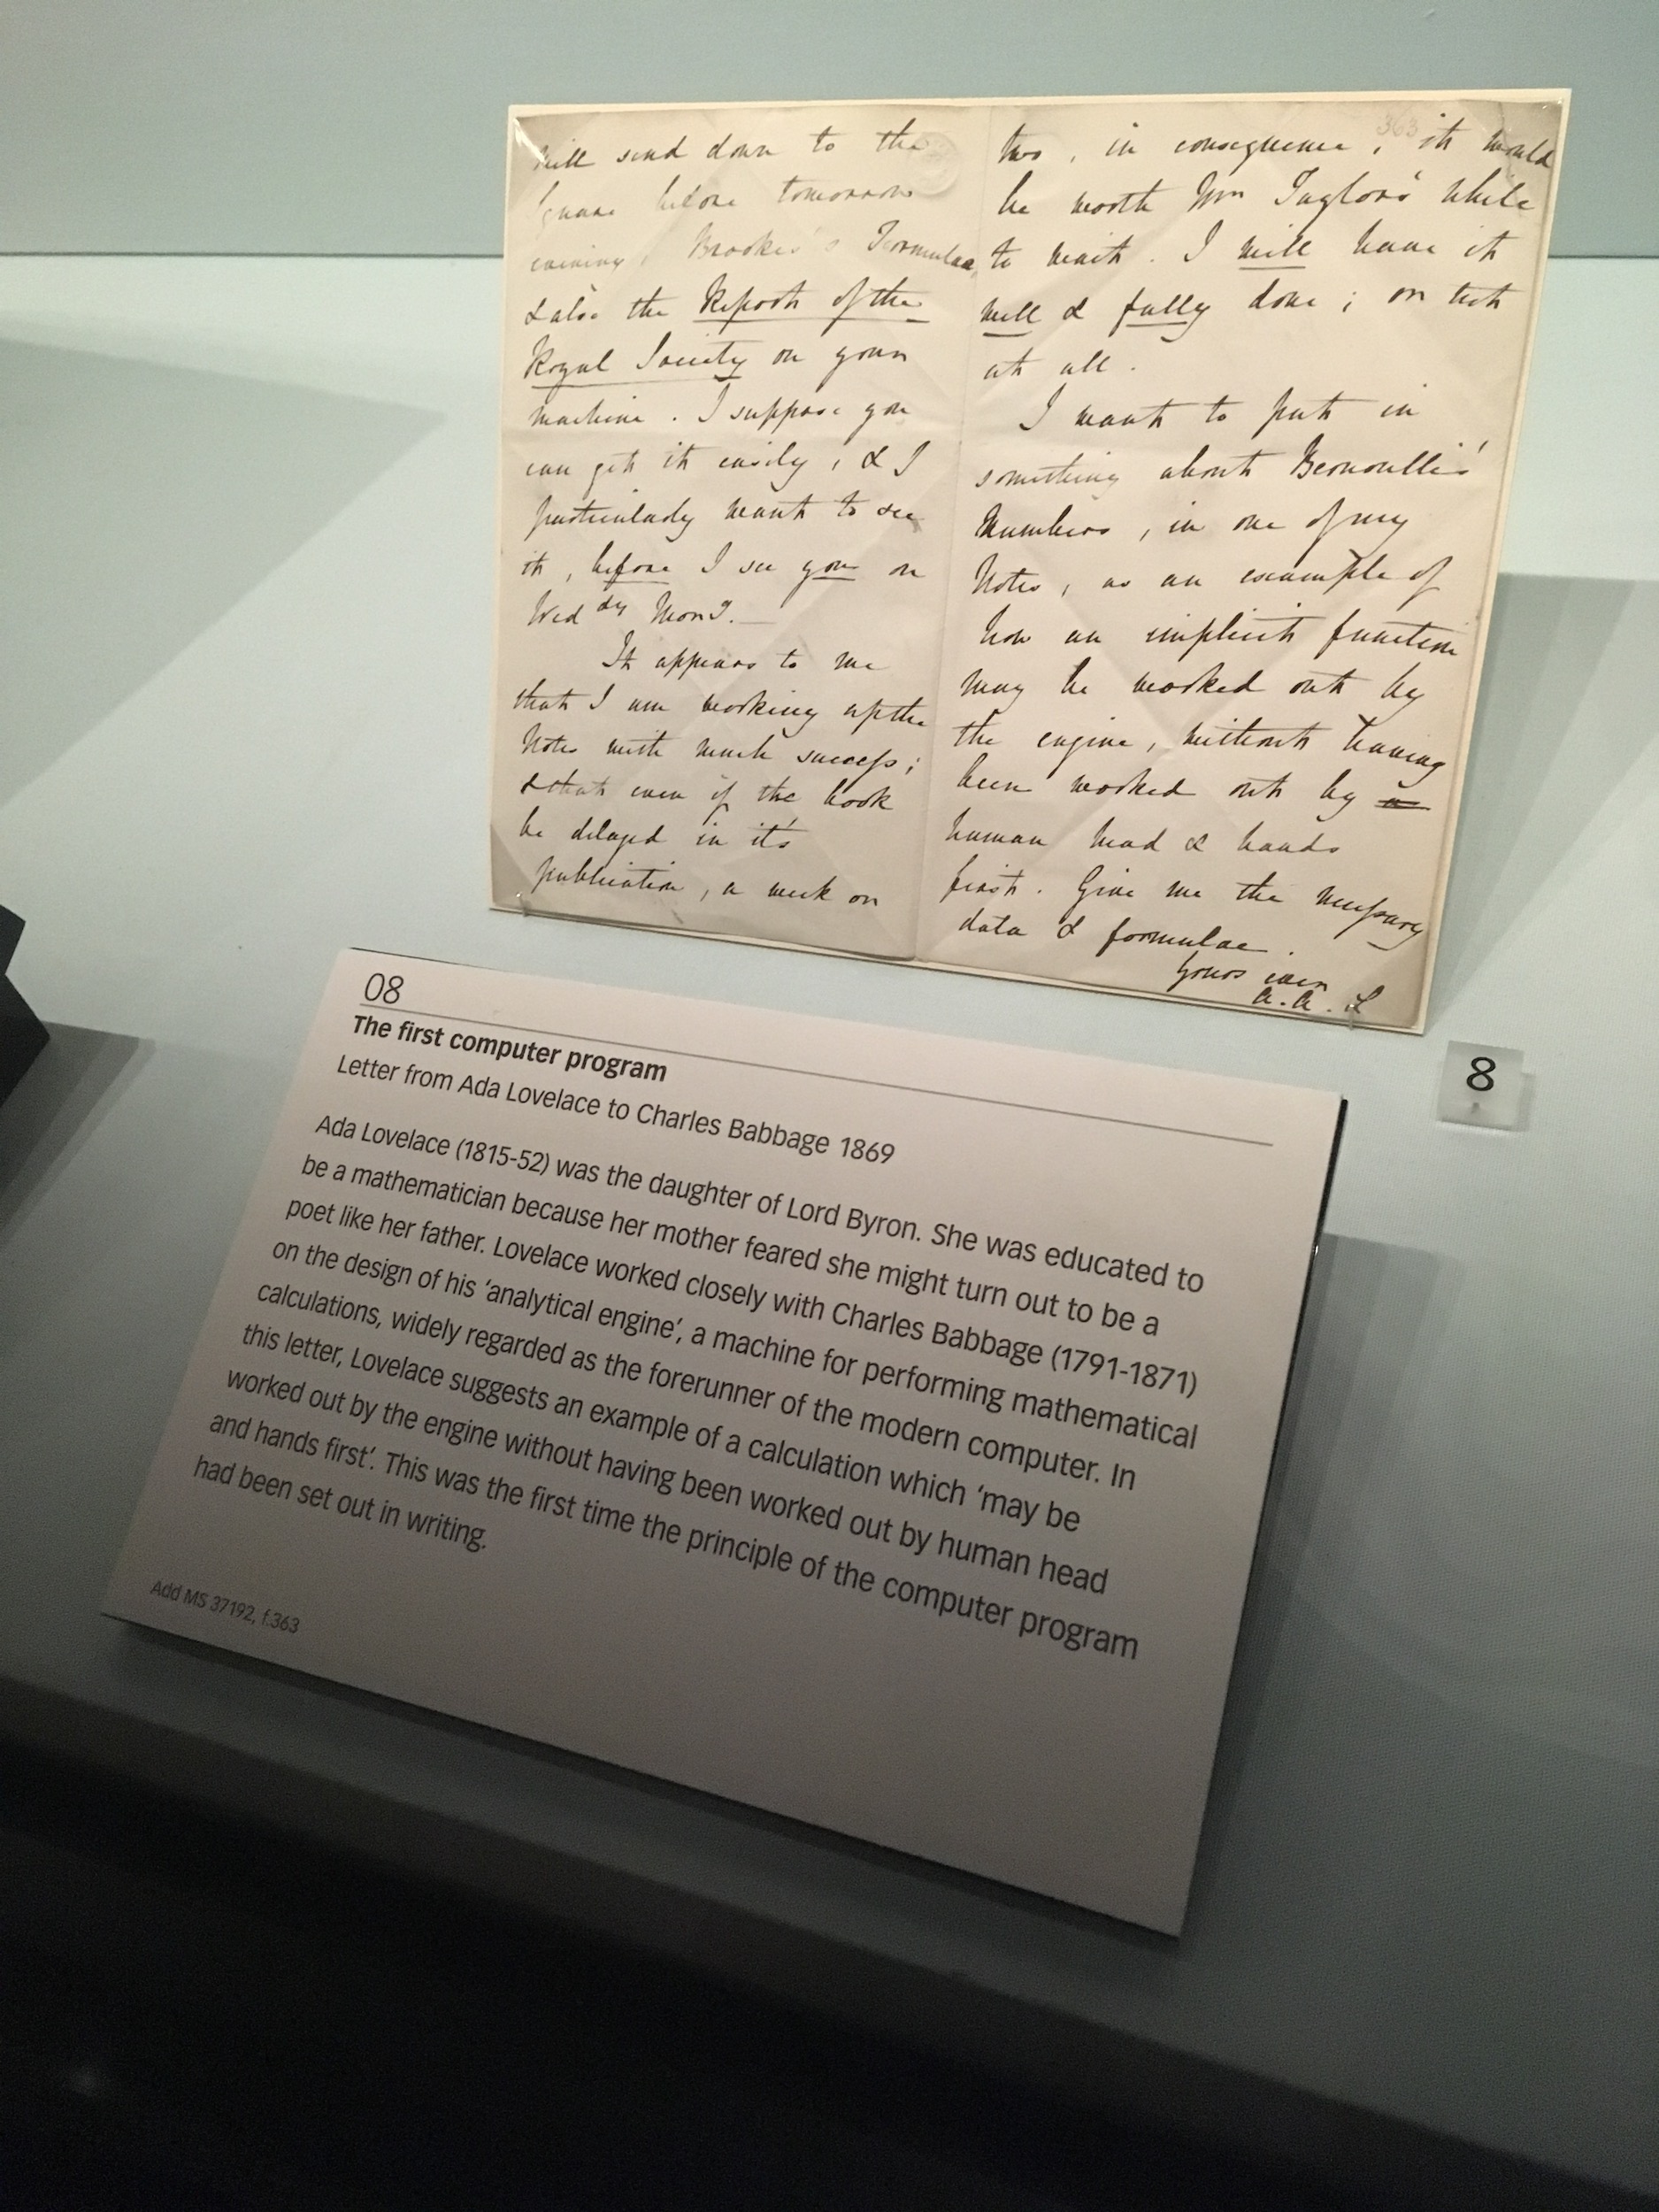 will send down to the
before tomorrow
evening, Brooke's Formulae,
& also the Report of the
Royal Society on your
machine. I suppose you
can get it easily, & I
particularly want to see
it, before I see you on
Wed dy Mor g.
It appears to me
that I am working up the
Notes with much success;
& that even if the book
be delayed in it's
publication, a week or
two, in consequence, it would
be worth Mr Taylor's while
to wait. I will have it
well & fully done; or not
at all.
I want to put in
something about Bernoulli's
Numbers, in one of my
Notes, as an example of
how an implicit function
may be worked out by
the engine, without having
been worked out by
human head & hands
first. Give me the necessary
data & formulae.
Yours ever
A. A. L
363
8
08
The first computer program
Letter from Ada Lovelace to Charles Babbage 1869
Ada Lovelace (1815-52) was the daughter of Lord Byron. She was educated to
be a mathematician because her mother feared she might turn out to be a
poet like her father. Lovelace worked closely with Charles Babbage (1791-1871)
on the design of his ‘analytical engine’, a machine for performing mathematical
calculations, widely regarded as the forerunner of the modern computer. In
this letter, Lovelace suggests an example of a calculation which ‘may be
worked out by the engine without having been worked out by human head
and hands first’. This was the first time the principle of the computer program
had been set out in writing.
Add MS 37192, f.363